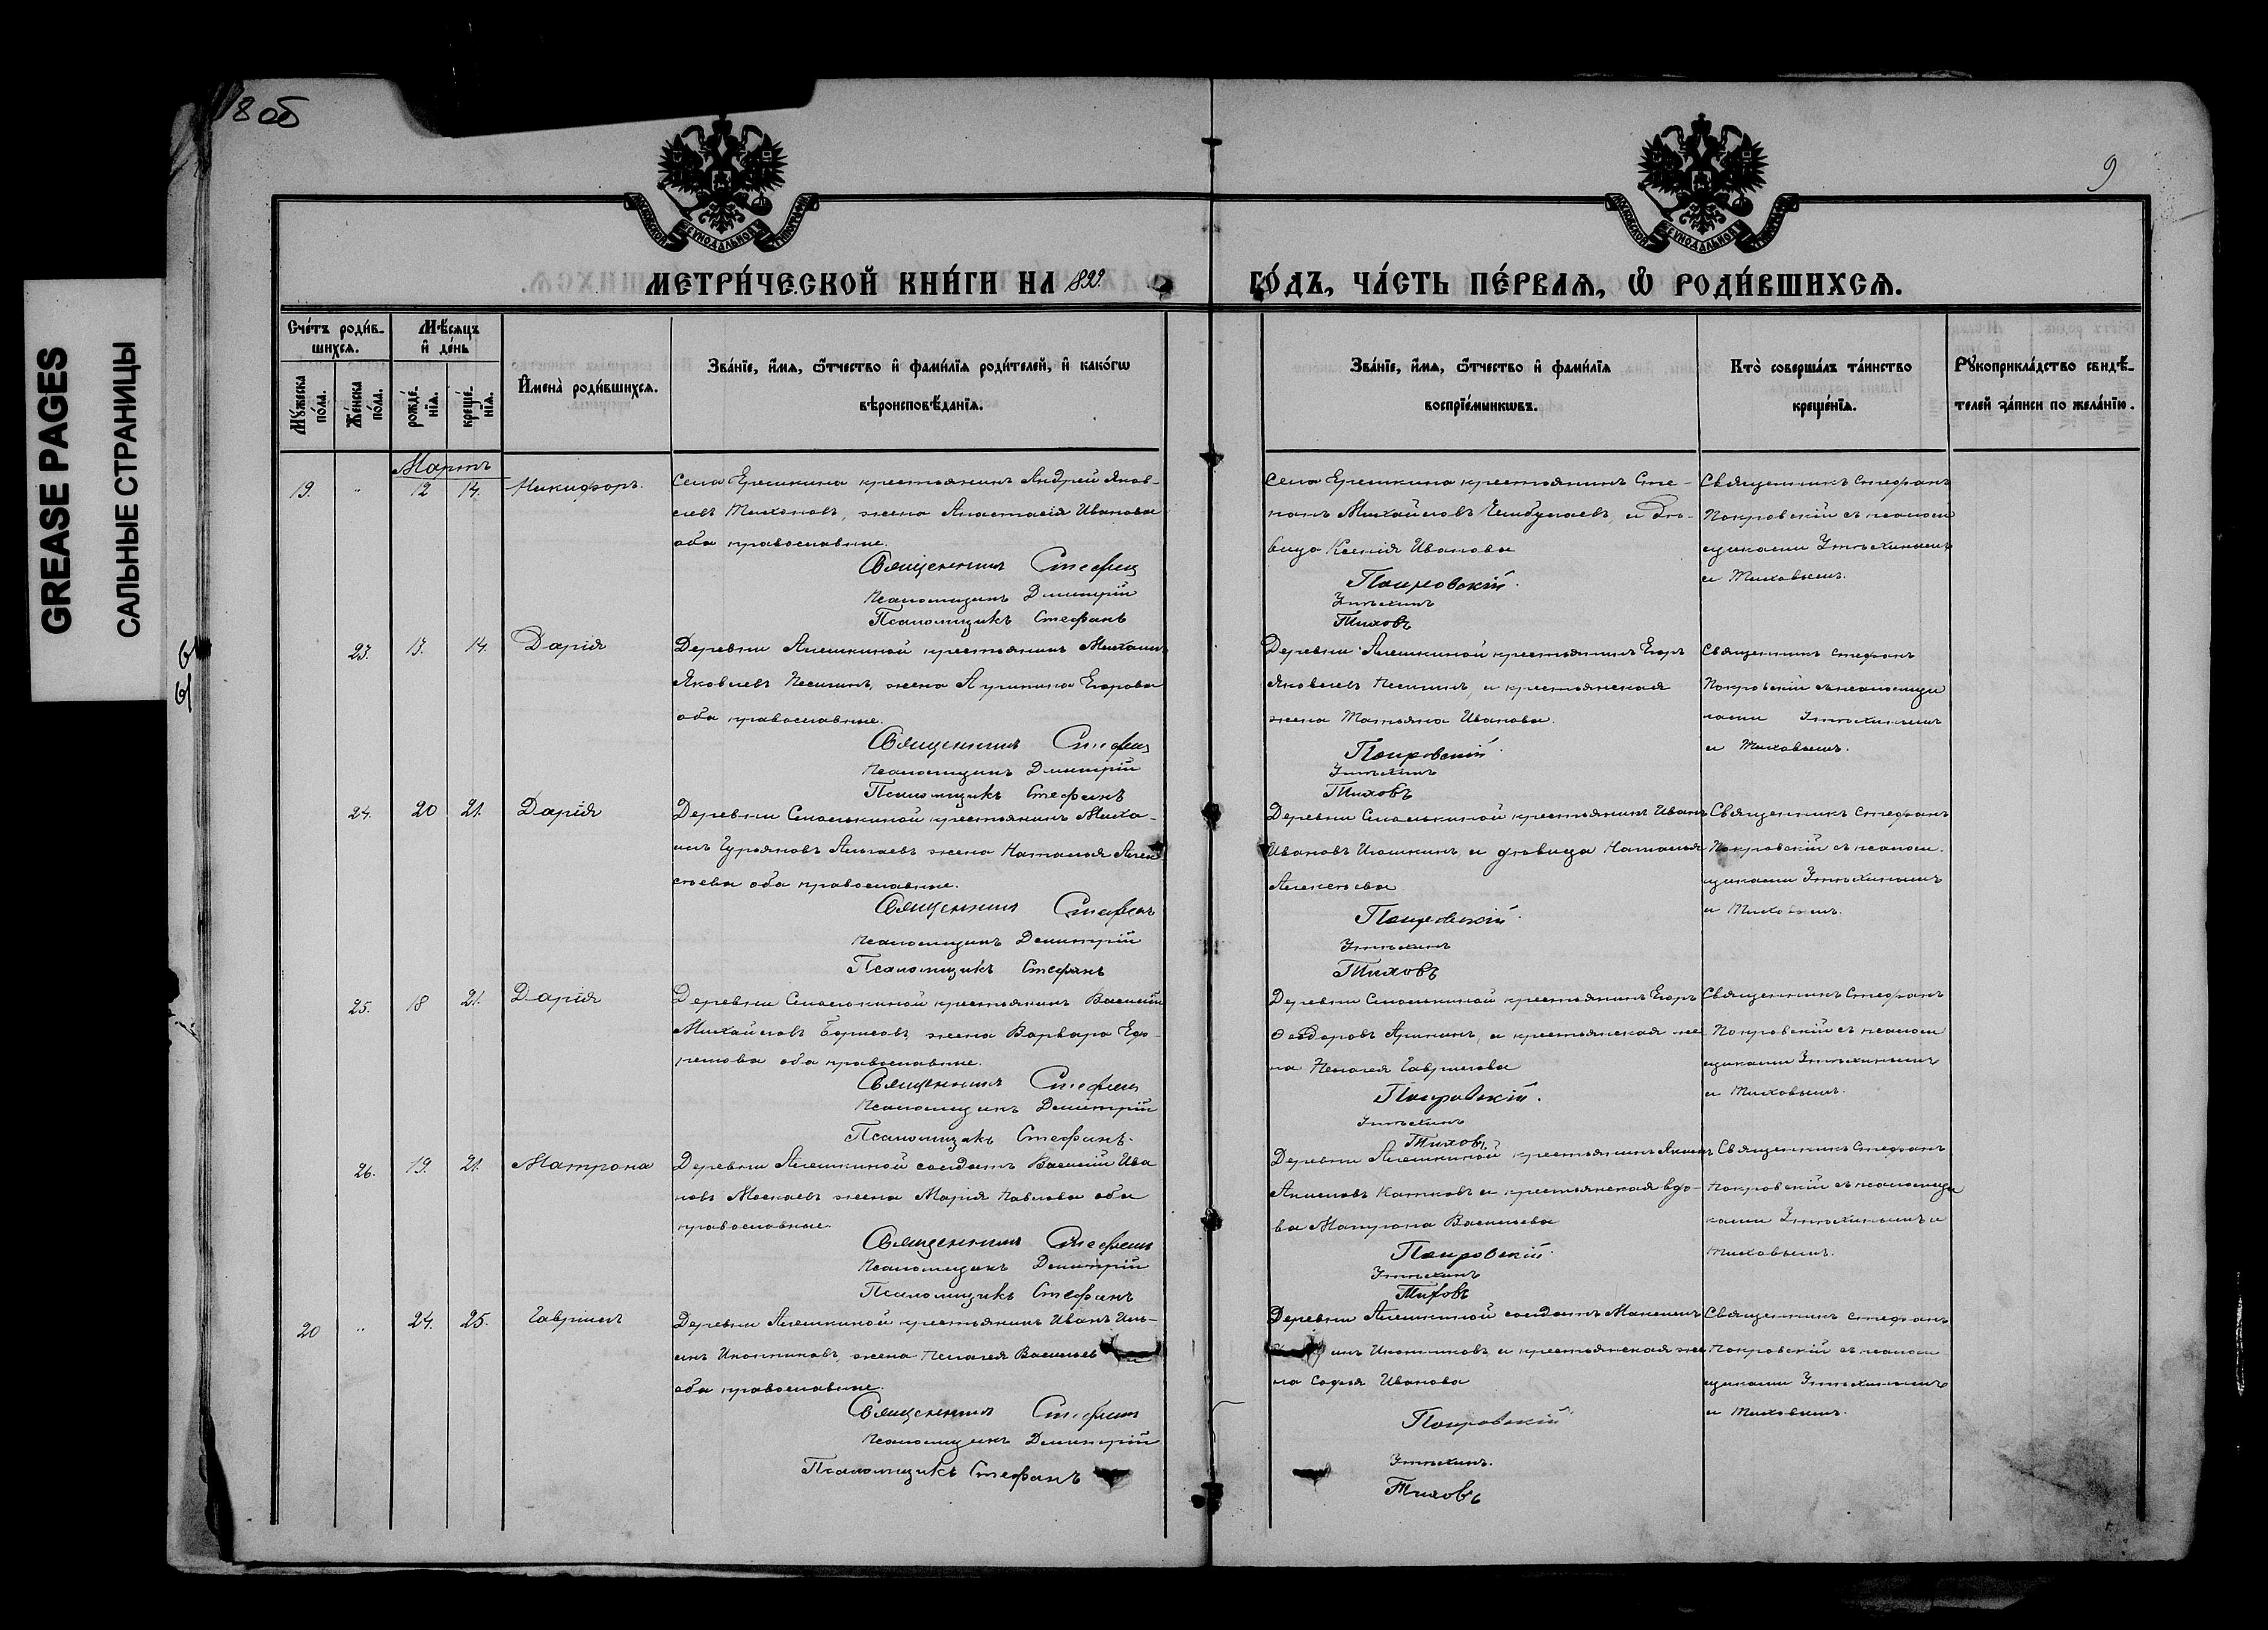 8 об
9
GREASE PAGES
САЛЬНЫЕ СТРАНИЦЫ
МЕТРИ́ЧЕСКОЙ КНИ́ГИ НА 1892
ГО́ДЪ, ЧА́СТЬ ПЕ́РВАѦ, Ѡ҆ РОДИ́ВШИХСѦ.
Сче́тъ роди́в-
шихсѧ.
Мꙋ́жеска по́ла.
Же́нска по́ла.
Мѣ́сѧцъ и҆ де́нь
рожде́нїѧ.
креще́нїѧ.
И҆мена̀ роди́вшихсѧ.
Зва́нїе, и҆́мѧ, ѻ҆́тчество и҆ фами́лїѧ роди́телей, и҆ како́гѡ
вѣроисповѣ́данїѧ.
Зва́нїе, и҆́мѧ, ѻ҆́тчество и҆ фами́лїѧ
воспрїе́мникѡвъ.
Кто̀ соверша́лъ та́инство
креще́нїѧ.
Рꙋкоприкла́дство свидѣ́-
телей за́писи по жела́нїю.
Мартъ
19. " 12 14. Никифоръ.
Села Ерешкина крестьянинъ Андрей Яков-
левъ Тихоновъ, жена Анастасія Иванова
оба православные.
Священникъ Стефан
Псаломщикъ Димитрій
Псаломщикъ Стефанъ
Села Ерешкина крестьянинъ Сте-
панъ Михайловъ и дѣ-
вица Ксенія Иванова
Покровскій.
Утѣхинъ
Тиховъ
Священникъ Стефанъ
Покровскій съ псаломщ
щиками Утѣхинымъ
и Тиховымъ.
23. 13. 14. Дарія
Деревни Алешкиной крестьянинъ Михаилъ
Яковлевъ жена Акулина Егорова
оба православные.
Священникъ Стефан
Псаломщикъ Димитрій
Псаломщикъ Стефанъ
Деревни Алешкиной крестьянинъ Егоръ
Яковлевъ и крестьянская
жена Татьяна Иванова.
Покровскій.
Утѣхинъ
Тиховъ
Священникъ Стефанъ
Покровскій съ псаломщи
ками Утѣхинымъ
и Тиховымъ.
24. 20 21. Дарія
Деревни Смолькиной крестьянинъ Миха-
илъ Гурьяновъ жена Наталья Алек
сѣева оба православные.
Священникъ Стефанъ
Псаломщикъ Димитрій
Псаломщикъ Стефанъ
Деревни Смолькиной крестьянинъ Иванъ
Ивановъ и дѣвица Наталья
Алексѣева
Покровскій.
Утѣхинъ
Тиховъ
Священникъ Стефанъ
Покровскій съ псалом-
щиками Утѣхинымъ
и Тиховымъ.
25. 18 21. Дарія
Деревни Смолькиной крестьянинъ Василій
Михайловъ Борисовъ, жена Варвара Ефр
ремова оба православные.
Священникъ Стефан
Псаломщикъ Димитрій
Псаломщикъ Стефанъ.
Деревни Смолькиной крестьянинъ Егоръ
Ѳеодоровъ и крестьянская же-
на Пелагея Гаврилова
Покровскій.
Утѣхинъ
Тиховъ
Священникъ Стефанъ
Покровскій съ псалом
щиками Утѣхинымъ
и Тиховымъ.
26. 19. 21. Матрона
Деревни Алешкиной солдатъ Василій Ива
новъ Москаевъ жена Марія Павлова оба
православные.
Священникъ Стефанъ
Псаломщикъ Димитрій
Псаломщикъ Стефанъ
Деревни Алешкиной крестьянинъ
Акимовъ и крестьянская вдо-
ва Матрона Васильева
Покровскій.
Утѣхинъ
Тиховъ
Священникъ Стефанъ
Покровскій съ псаломщи
ками Утѣхинымъ и
Тиховымъ.
20 " 24. 25. Гавріилъ
Деревни Алешкиной крестьянинъ Иванъ Иль-
инъ Иконниковъ, жена Пелагея Васильев
оба православные.
Священникъ Стефанъ
Псаломщикъ Димитрій
Псаломщикъ Стефанъ
Деревни Алешкиной солдатъ Максимъ
инъ Иконниковъ и крестьянская же
на Софья Иванова
Покровскій
Утѣхинъ.
Тиховъ
Священникъ Стефанъ
Покровскій съ псалом
щиками Утѣхинымъ
и Тиховымъ.